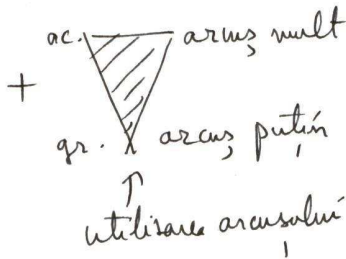 ac. arcuș mult
+
gr. arcuș puțin
↑
utilisarea arcusului